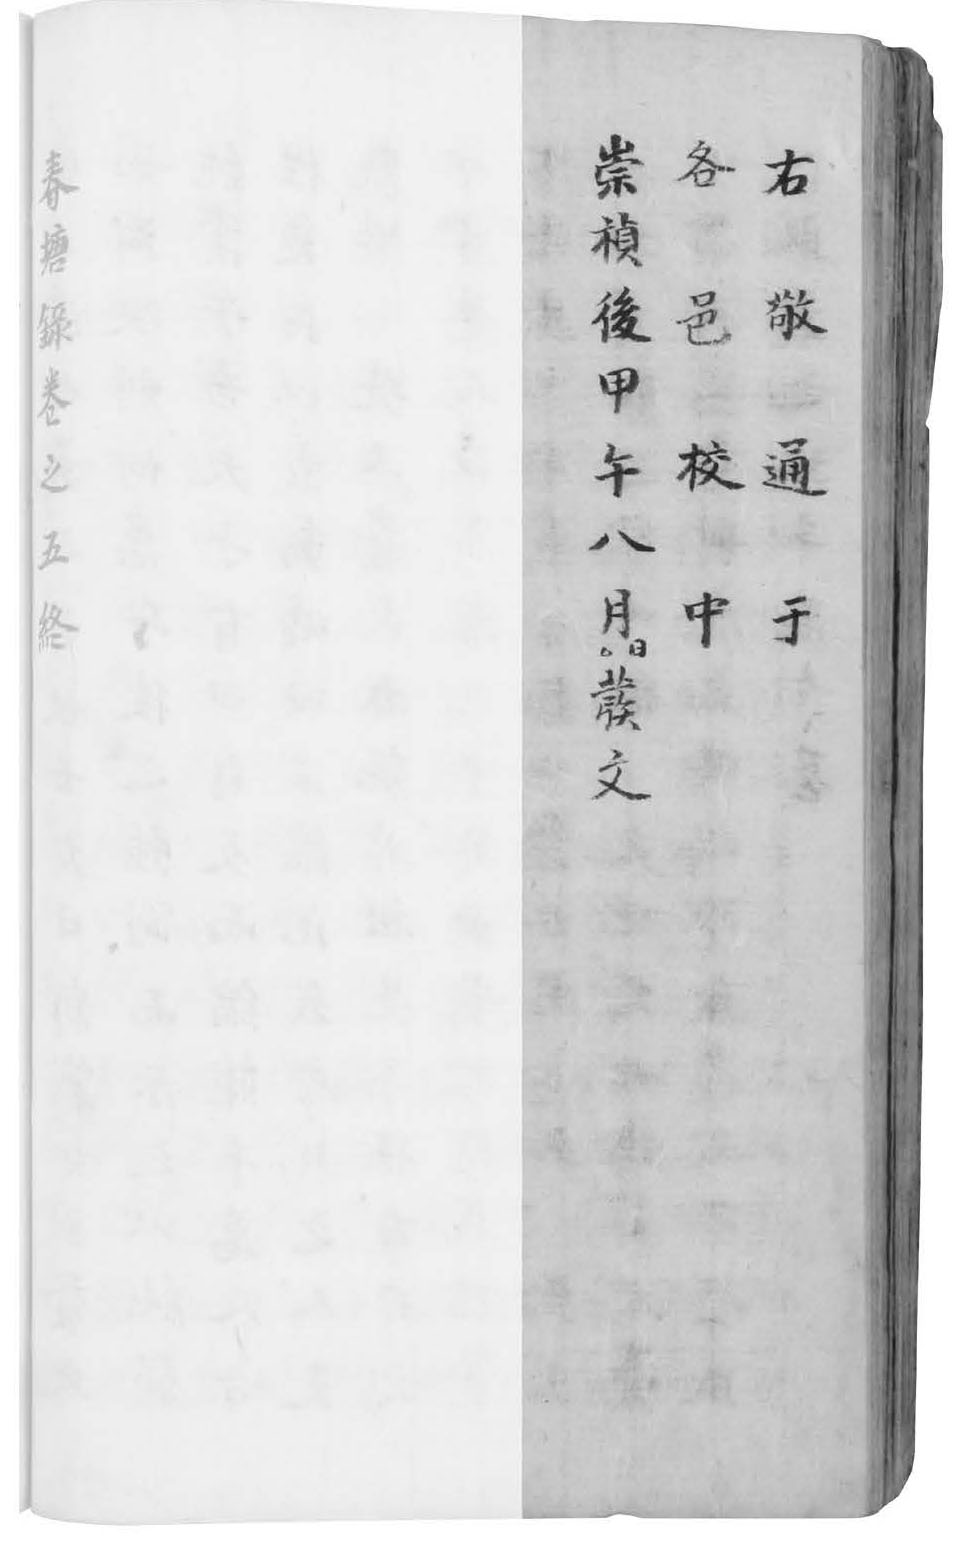 右敬通于
各邑校中
崇禎後甲午八月。日發文
春塘錄卷之五終